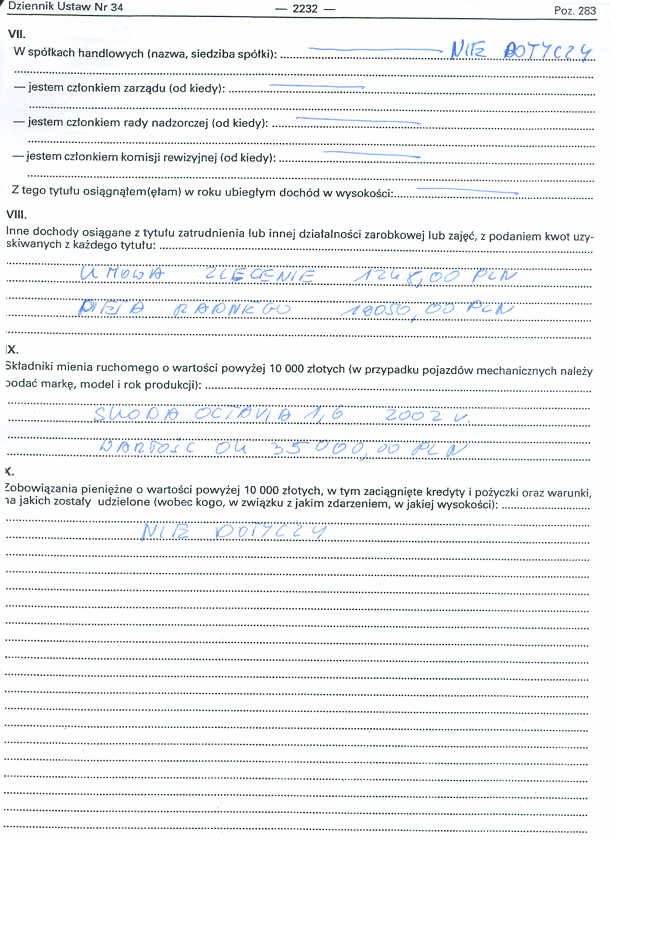 Dziennik Ustaw Nr 34 — 2232 — Poz. 283
VII.
W spółkach handlowych (nazwa, siedziba spółki): NIE DOTYCZY
— jestem członkiem zarządu (od kiedy):
— jestem członkiem rady nadzorczej (od kiedy):
— jestem członkiem komisji rewizyjnej (od kiedy):
Z tego tytułu osiągnąłem(ęłam) w roku ubiegłym dochód w wysokości:
VIII.
Inne dochody osiągane z tytułu zatrudnienia lub innej działalności zarobkowej lub zajęć, z podaniem kwot uzy-
skiwanych z każdego tytułu:
UMOWA ZLECENIE 1248,00 PLN
DIETA RADNEGO 18050,00 PLN
IX.
Składniki mienia ruchomego o wartości powyżej 10 000 złotych (w przypadku pojazdów mechanicznych należy
podać markę, model i rok produkcji):
SKODA OCTAVIA 1,6 2002 r.
WARTOŚĆ OK 35000,00 PLN
X.
Zobowiązania pieniężne o wartości powyżej 10 000 złotych, w tym zaciągnięte kredyty i pożyczki oraz warunki,
na jakich zostały udzielone (wobec kogo, w związku z jakim zdarzeniem, w jakiej wysokości):
NIE DOTYCZY